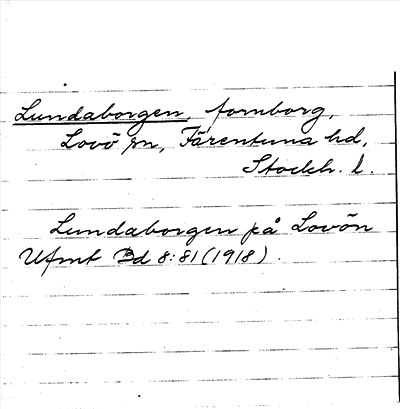 Lundaborgen, fornborg,
Lovö sn, Färentuna hd,
Stockh. l.
Lundaborgen på Lovön
Ufmt Bd 8:81 (1918).